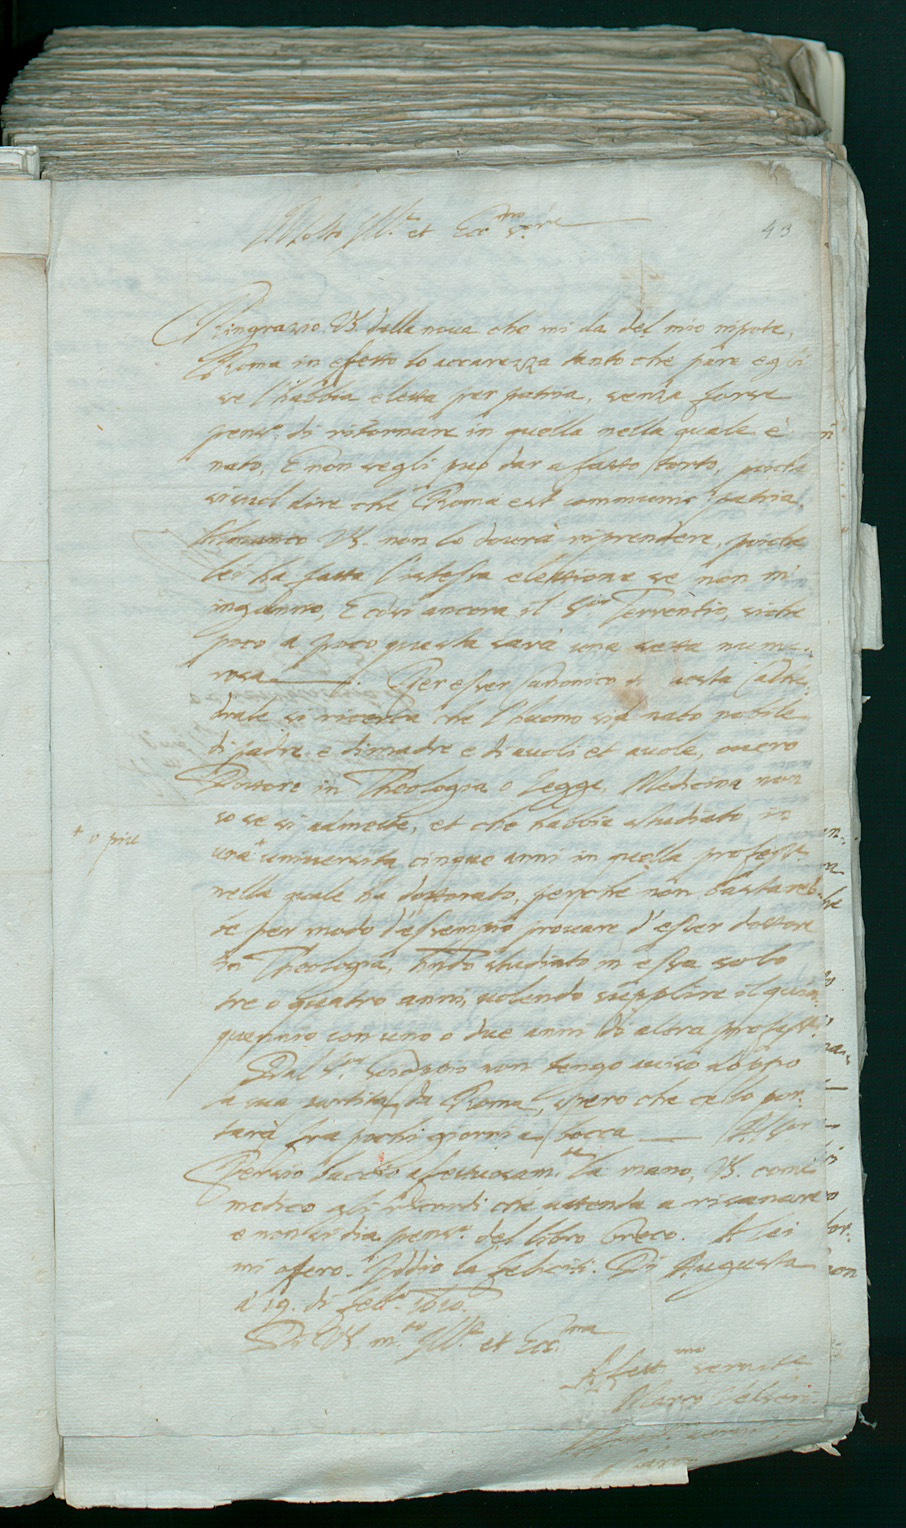 Molto Ill.e et Ecc.mo s.ore
43
Ringratio VS. della noua che mi da del mio nipote,
Roma in efetto lo accarezza tanto che pare egli
se l'habbia eletta per patria, senza forse
pens.r di ritornare in quella nella quale è
nato, E non segli puo dar afatto torto, poiche
si suol dire che Roma est communis patria,
VS. non lo dourà riprendere, poiche
lei ha fatta l'istessa elettione se non m'
inganno, E così ancora il S.or Terrentio, siche
poco a poco questa sarà una setta nume-
rosa. Per esser Canonico di uesta Cathe-
drale si ricerca che l'huomo sia nato nobile
di padre e di madre e di auoli et auole, ouero
Dottore in Theologia o Legge, Medicina non
so se si admette, et che habbia studiato in
+ o piu
una+ uniuersita cinque anni in quella profess.e
nella quale ha dottorato, perche non bastareb-
be per modo d'essempio prouare d'esser dottore
in Theologia, studiato in essa solo
tre o quatro anni, uolendo supplire il quin-
quennio con uno o due anni di altra profess.e
Dal S.or non tengo auiso doppo
la sua partita da Roma, spero che cello por-
tarà fra pochi giorni a bocca Al Sor
Persio baccio afettuosam.te la mano, VS. come
medico gli ricordi che attenda a risanare
e non si dia pens.r del libro Greco. A lei
mi ofero. Iddio la feliciti. Di Augusta
a' 19. di feb.o 1610.
Di VS. m.to Ill.e et Ecc.ma
Afett.mo seruite
Marco Velseri